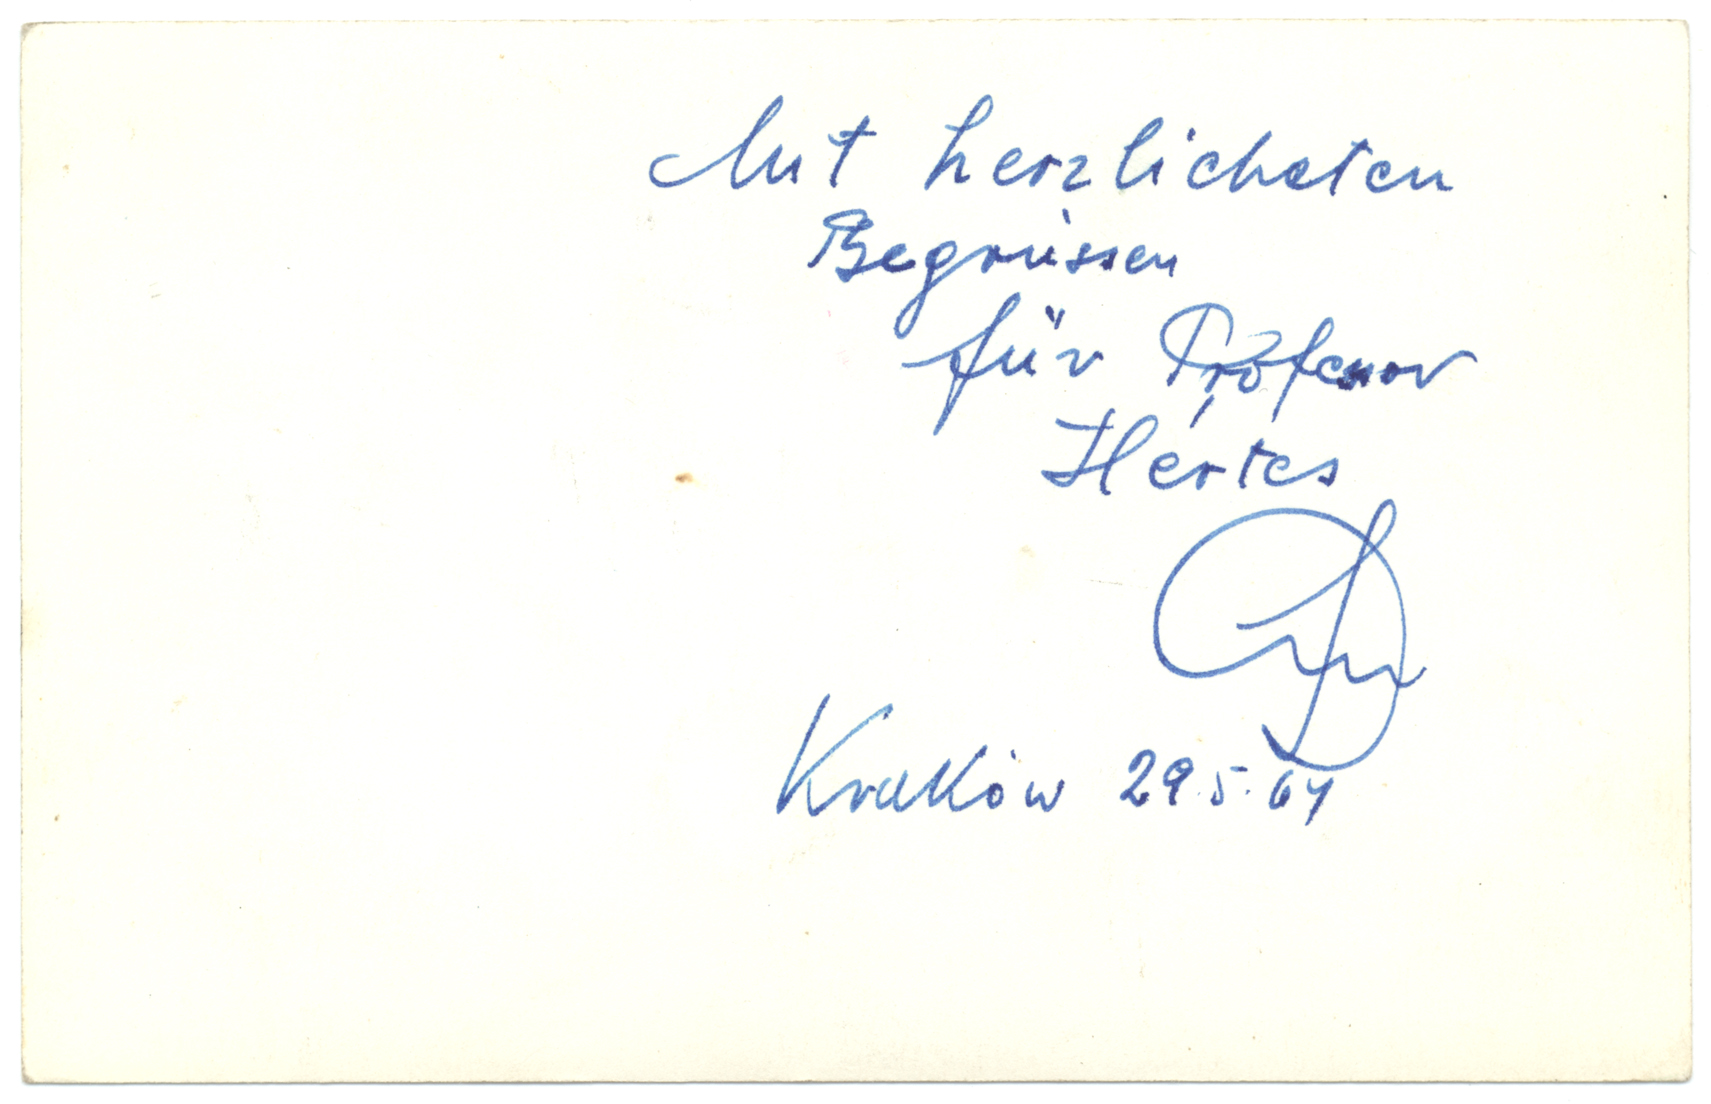 Mit herzlichsten
Begrüssen
für Professor
Hertes
Kraków 29.5.64